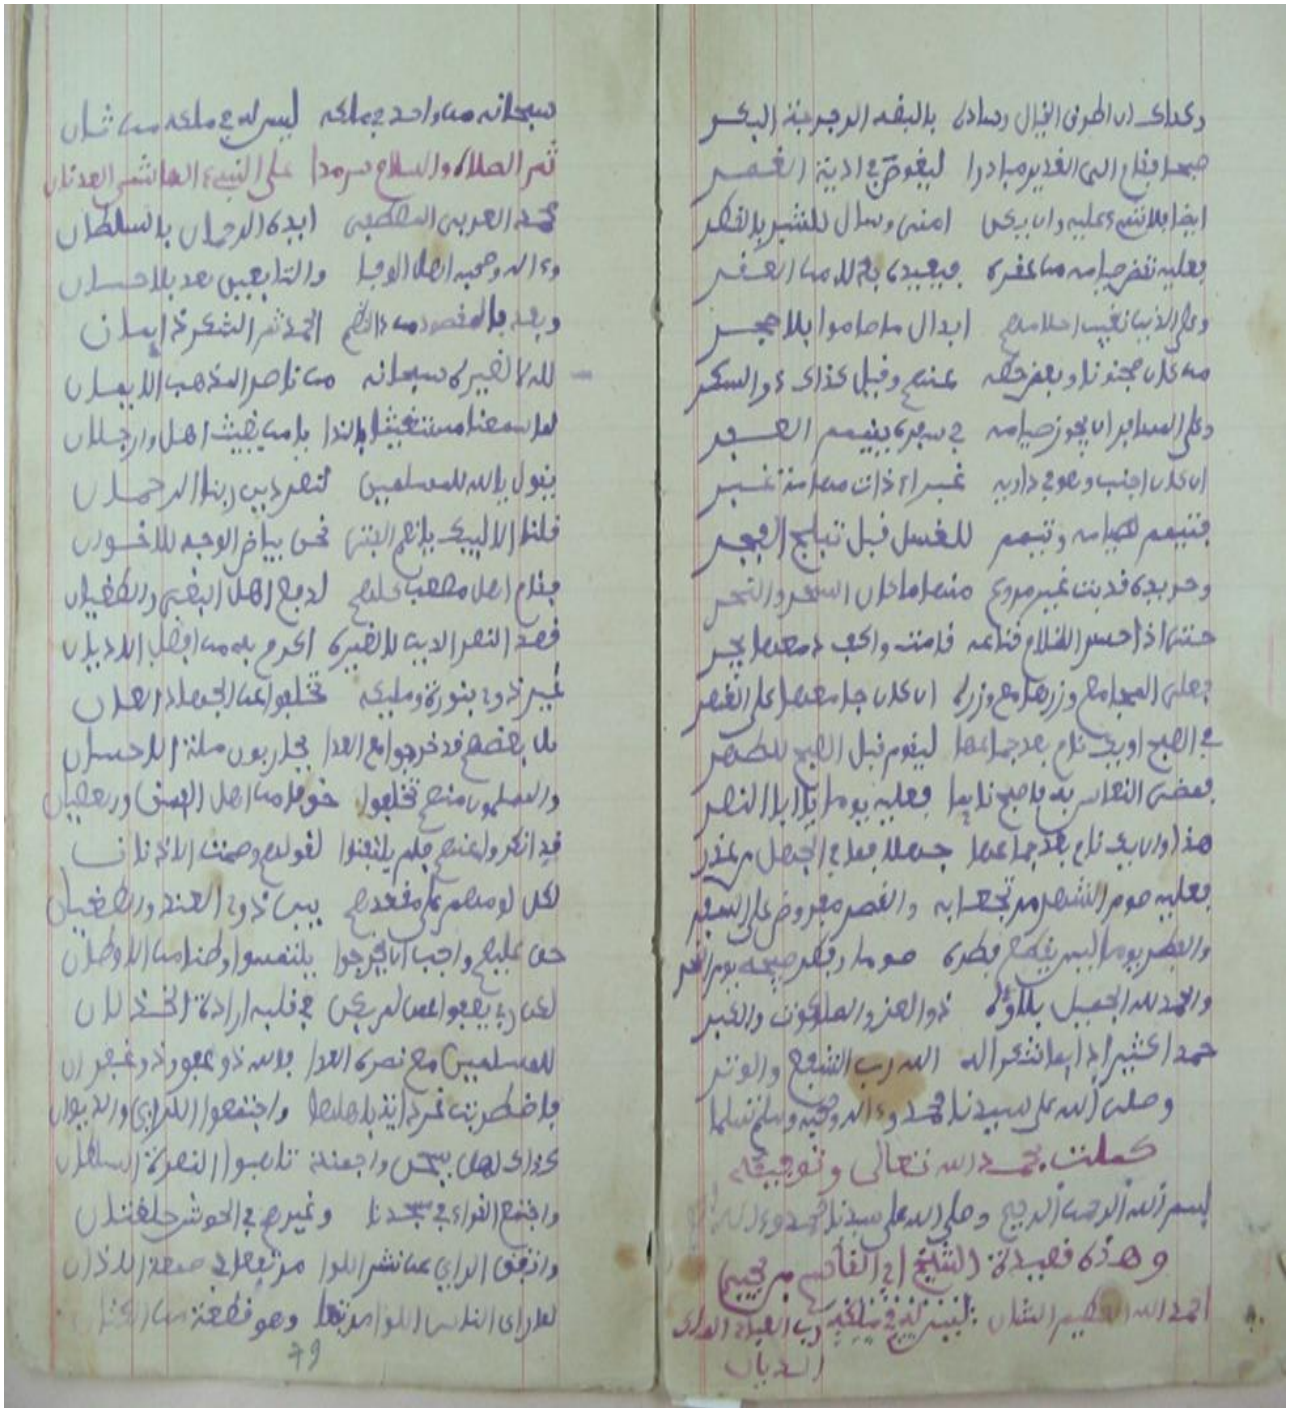 وكذاك ان اطرق الخيال وسادة بالبقه الرجرجة البكر
صبحا فقام الى الغدير مبادرا ليغوض في اذية الغمر
ايضا فلا شيء عليه وان يكن امنى وسال للنشر بالفكر
فعليه نقض صيامه من عفره فيعيده بدلا من العفر
وعلى الذين تغيب احلامهم ابدال ما صاموا بلا حجر
من كان مجنونا وبعض حكه عنهم وقيل كذاك ذو السكر
وعلى المسافر ان يجوز صيامه في سفره بتيمم العسر
ان كان اجنب وهو في داوية غبراء ذات مهامة غبر
فتيمم لصيامه وتيمم للغسل قبل تبلج الفجر
وخريدة قد بت غير مروع منها مكان السحر والنحر
حتى اذا حسر الظلام قناعه قامت واكف دمعها يجر
فعلى المجامع وزرها مع وزره ان كان جامعها على القهر
في الصبح او يك نام بعد جماعها ليقوم قبل الصبح للطهر
فمضى النعاس به فاصبح نايما فعليه يوما يا ابا النضر
هذا وان يك نام بعد جماعها جهلا فما في الجهل من عذر
فعليه صوم الشهر من تجعابه والقصر مفروض على السفر
والفطر يوما ليس يقطع فطره صوما وفطر صبحه يوم النحر
والحمد لله الجميل بلاؤه ذو العز والملكوت والكبر
حمدا كثيرا دايما شكرا له الله رب الشفع والوتر
وصلى الله على سيدنا محمد وءاله وصحبه وسلم تسليما
كملت بحمد الله تعالى وتوفيقه
بسم الله الرحمن الرحيم وصلى الله على سيدنا محمد وءاله
وهذه قصيدة الشيخ ابي القاسم بن يحيى
احمد الله العظيم الشان ليس له في ملكه رب العباد
الديان
سبحانه من واحد في ملكه ليس له في ملكه من ثان
ثم الصلاة والسلام سرمدا على النبيء الهاشمي العدنان
محمد العربي المصطفى ايده الرحمان بالسلطان
وءاله وصحبه اهل الوفا والتابعين بعد بالاحسان
وبعد فالمقصود من ذا النظم الحمد ثم الشكر دايمان
لله لا لغيره سبحانه من ناصر المذهب الايمان
لما سمعنا مستغيثا بالندا يا من يغيث اهل وارجلان
يقول يالله للمسلمين لنصر دين ربنا الرحمان
قلنا الا لبيك يا نعم الفتى نحن بياض الوجه للاخوان
فقام اهل مصعب كلهم لدفع اهل البغي والطغيان
قصد النصر الدين لا لغيره اكرم به من افضل الاديان
غير ذوي بنورة ومليكة تخلفوا عن الجهاد العلان
بل بعضهم قد خرجوا مع العدا يحاربون ملة الاحسان
والمسلمون منهم تخلفوا خوفا من اهل الفسق والعصيان
قد انكروا عنهم فلم يلتفتوا لقولهم وصمت الاذنان
لكل لومهم على مقعدهم بين ذوي العند والطغيان
حق عليهم واجب ان يخرجوا يلتمسوا وطنا من الاوطان
لكن ويعفوا عمن لم يكن في قلبه ارادة الخذلان
للمسلمين مع نصرة العدا فالله ذو عفو وذو غفران
فاضطربت غرداية باهلها واجتمعوا للراي والديوان
كذاك اهل يسجن واجمعة تاهبوا لنصرة السلطان
واجتمع القواء في مسجدنا وغيرهم في الحوش حلقتان
واتفق الراي على نشر اللوا مرتفعا في صمعة الاذان
لما راى الناس اللوا مرتفعا وهو قطعة من الكتان
79